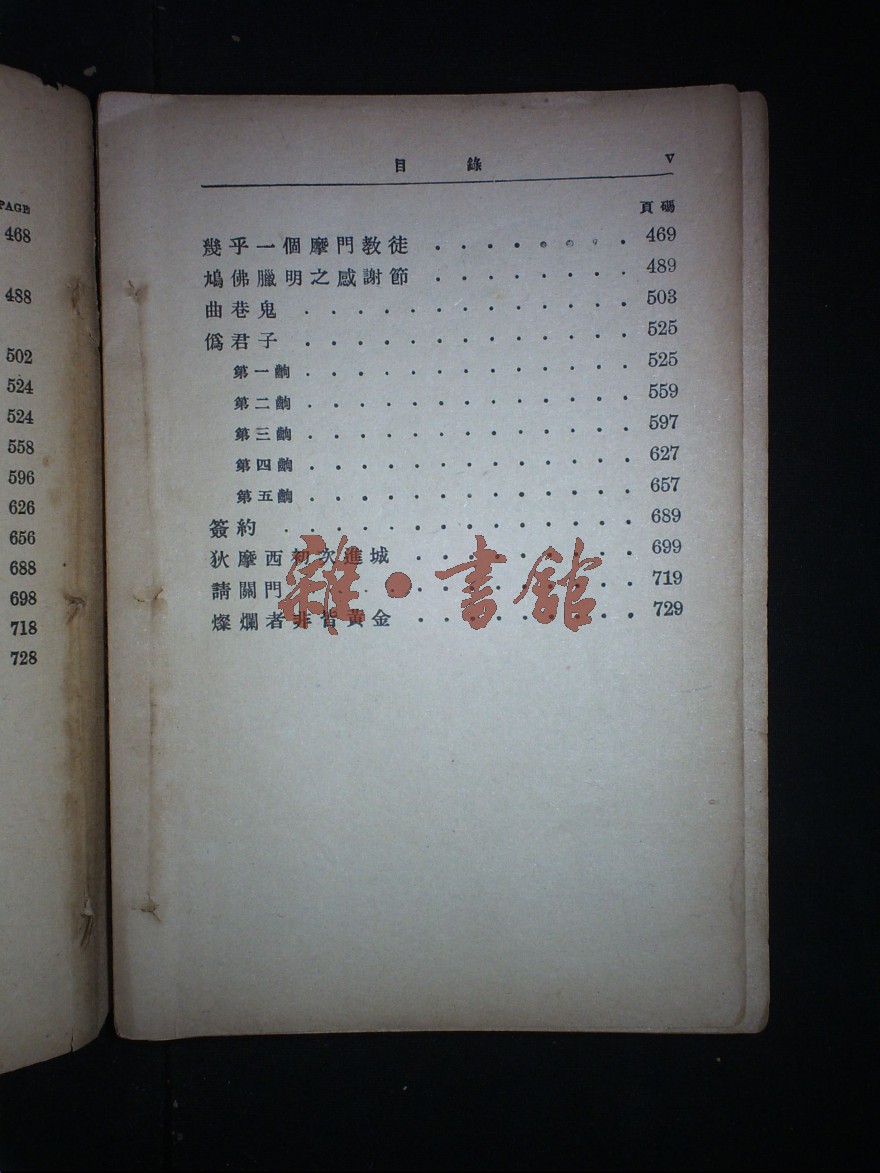 PAGE
468
488
502
524
524
558
596
626
656
688
698
718
728
目 錄 V
頁碼
幾乎一個摩門教徒 . . . . . . . . 469
鳩佛臘明之感謝節 . . . . . . . . 489
曲巷鬼 . . . . . . . . . . . . . 503
僞君子 . . . . . . . . . . . . . 525
第一齣 . . . . . . . . . . . . . 525
第二齣 . . . . . . . . . . . . . 559
第三齣 . . . . . . . . . . . . . 597
第四齣 . . . . . . . . . . . . . 627
第五齣 . . . . . . . . . . . . . 657
簽約 . . . . . . . . . . . . . . 689
狄摩西初次進城 . . . . . . . . . 699
請關門 . . . . . . . . . . . . . 719
燦爛者非皆黃金 . . . . . . . . . 729
雜·書館